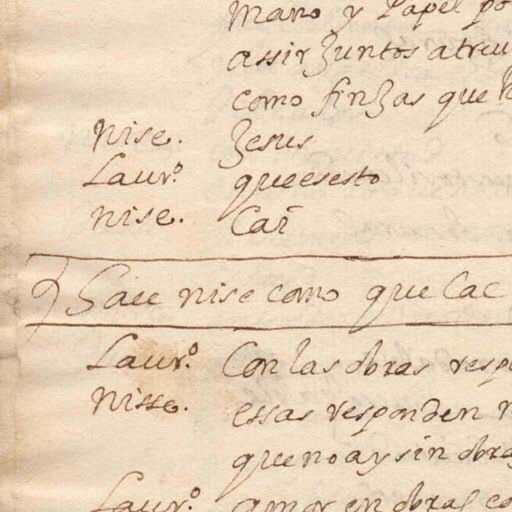 mano y Papel po
assir Juntos atreu
como finJas que h
nise. Jesus
Laur.º queesesto
nise. Cai
Sale nise como que Cae
Laur.º Con las obras resp
nisse. essas responden
que no ay sin obra
Laur.º amor en obras co